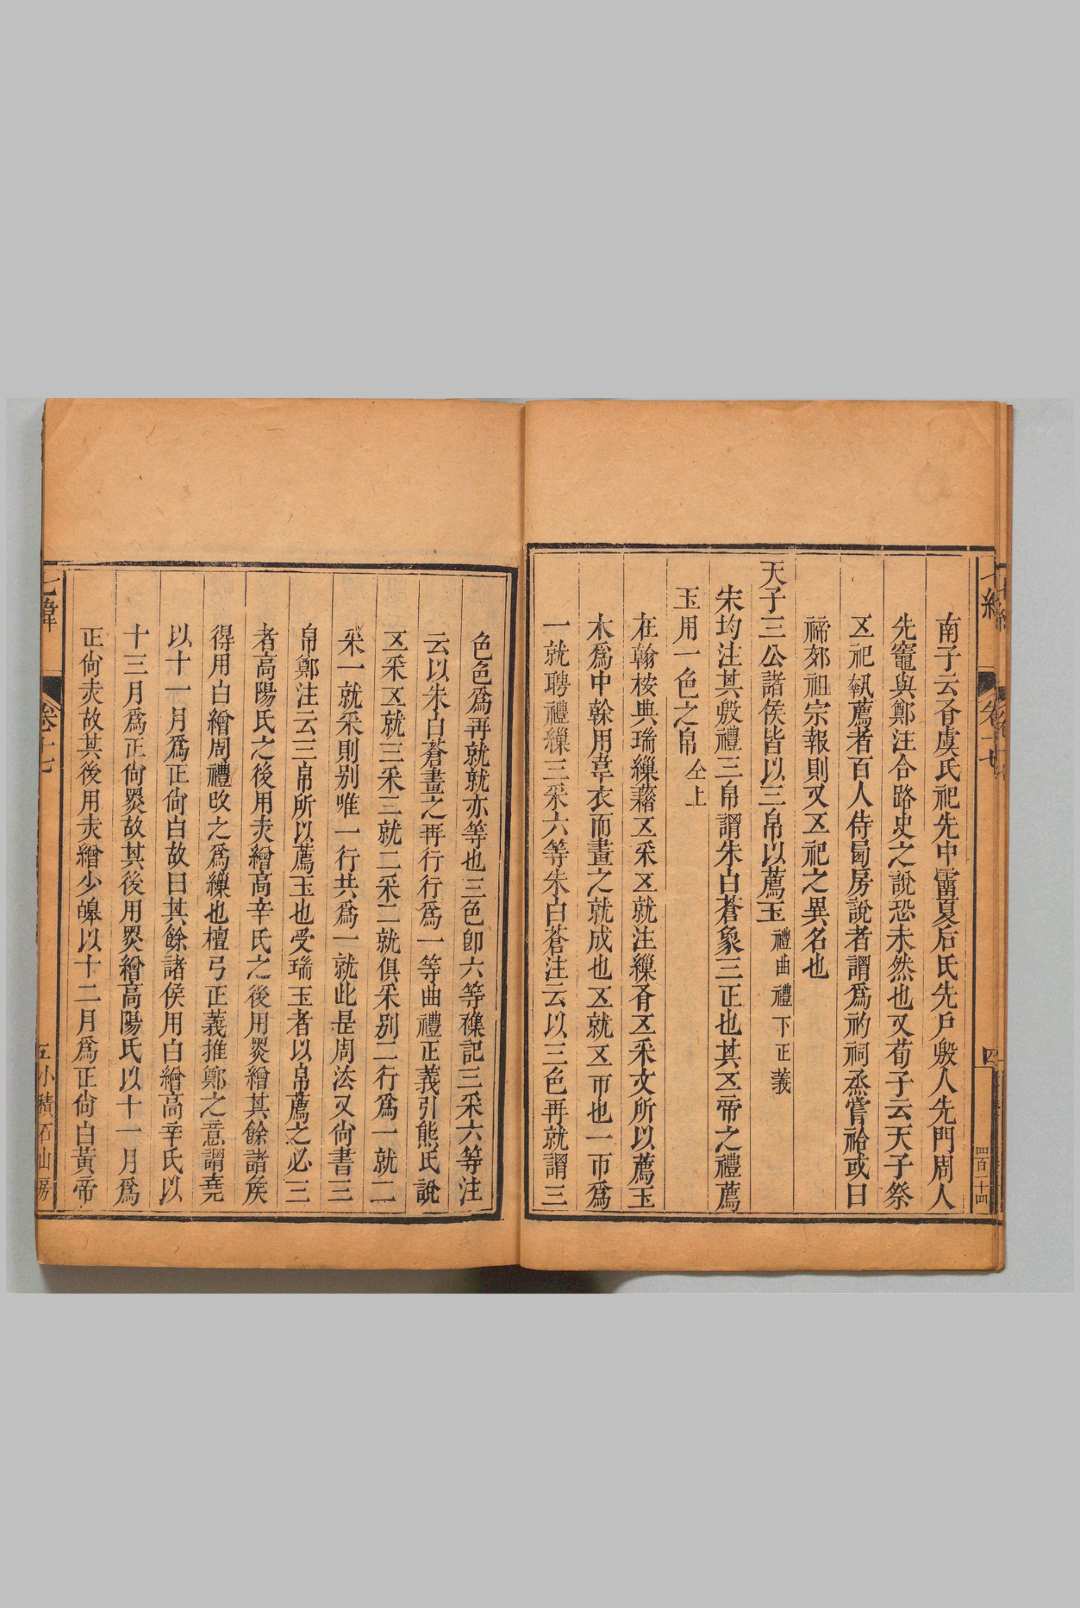 南子云有虞氏祀先中霤夏后氏先戶殷人先門周人
先竈與鄭注合路史之說恐未然也又荀子云天子祭
五祀執薦者百人侍西房說者謂為礿祠烝嘗祫或曰
禘郊祖宗報則又五祀之異名也
天子三公諸侯皆以三帛以薦玉禮曲禮下正義
宋均注其殷禮三帛謂朱白蒼象三正也其五帝之禮薦
玉用一色之帛仝上
在翰桉典瑞繅藉五采五就注繅有五采文所以薦玉
木為中榦用韋衣而畫之就成也五就五帀也一帀為
一就聘禮繅三采六等朱白蒼注云以三色再就謂三
色色為再就就亦等也三色卽六等襍記三采六等注
云以朱白蒼畫之再行行為一等曲禮正義引熊氏說
五采五就三采三就二采二就俱采別二行為一就二
采一就采則別唯一行共為一就此是周法又尙書三
帛鄭注云三帛所以薦玉也受瑞玉者以帛薦之必三
者高陽氏之後用赤繒高辛氏之後用黑繒其餘諸侯
得用白繒周禮改之為繅也檀弓正義推鄭之意謂堯
以十一月為正尙白故曰其餘諸侯用白繒高辛氏以
十三月為正尙黑故其後用黑繒高陽氏以十一月為
正尙赤故其後用赤繒少皞以十二月為正尙白黃帝
七緯
卷十七
小積石山房